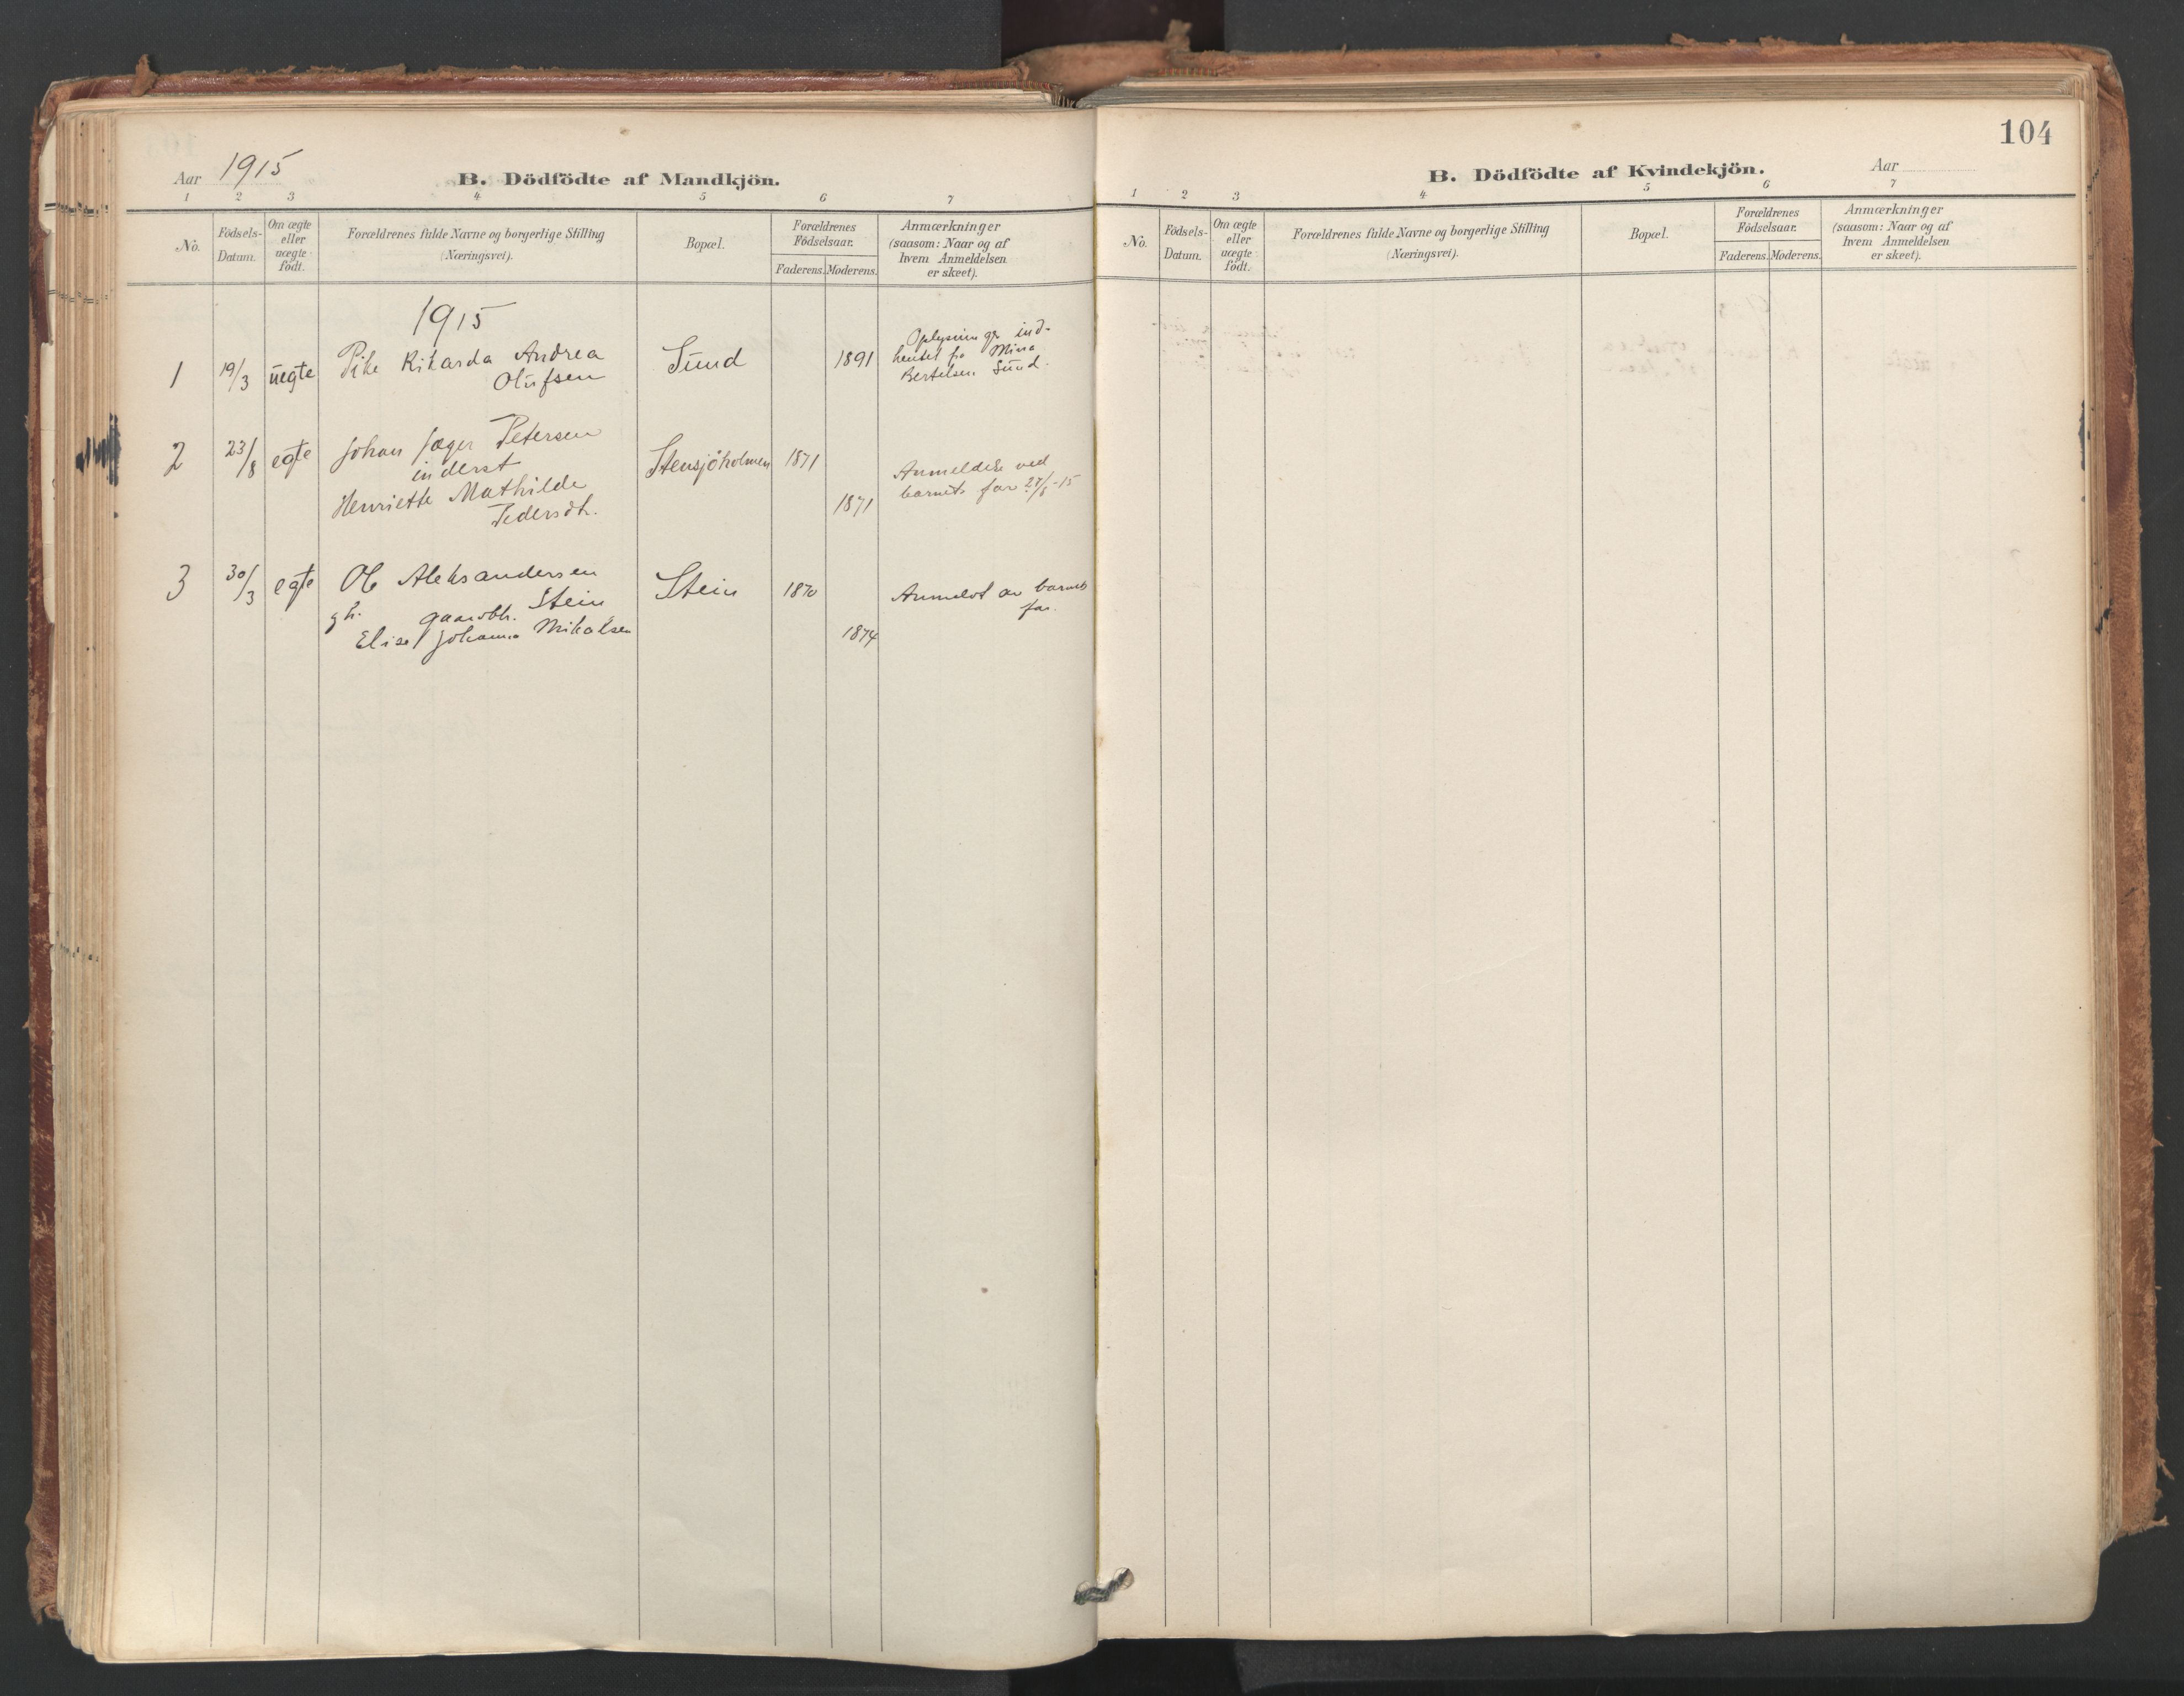 Aar 1915
B. Dödfödte af Mandkjön.
1 2 3 4 5 6 7
No.
Födsels-
Datum.
Om ægte
eller
uægte
födt.
Forældrenes fulde Navne og borgerlige Stilling
(Næringsvei).
Bopæl.
Forældrenes
Födselsaar.
Faderens. Moderens.
Anmærkninger
(saasom: Naar og af
hvem Anmeldelsen
er skeet).
1915
1 19/3 uegte Pike Rikarda Andrea
Olufsen
Sund
1891
Oplysninger ind-
hentet fr Mina
Bertelsen Sund.
2 23/8 egte Johan Jæger Petersen
inderst
Henriette Mathilde
Pedersdtr.
Stensjöholmen 1871
1871
Anmeldelse ved
barnets far 27/8-15
3 30/3 egte Ole Aleksandersen
Stein
gh. gaardbr.
Elise Johanna Mikalsen
Stein 1870
1874
Anmeldt av barnets
far.
104
Aar
B. Dödfödte af Kvindekjön.
1 2 3 4 5 6 7
No.
Födsels-
Datum.
Om ægte
eller
uægte
födt.
Forældrenes fulde Navne og borgerlige Stilling
(Næringsvei).
Bopæl.
Forældrenes
Födselsaar.
Faderens. Moderens.
Anmærkninger
(saasom: Naar og af
hvem Anmeldelsen
er skeet).